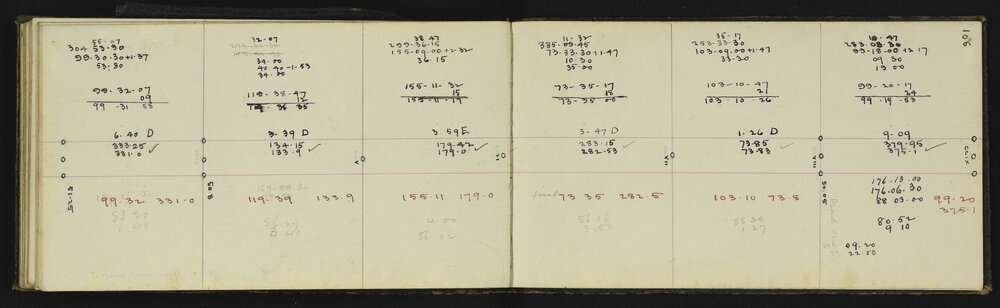 106
55.07
304 53.30
99.30.30+1.37
53.30
99-32-07
09
99-31 55
6.40 D
333.25
331.0
52.13
99.32 331.0
83.20
32.07
34.00
40.40-1.53
34.00
119-38-47
12
35
3.39 D
134.15
133.9
119.39 133.9
38.47
299-36-15
155-09-00+2.32
36.15
155-11-32
15
155-11-19
3 59E
179.42
179.0
155.11 179.0
86 02
11.32
335-09-45
73.33.30+1.47
10.30
35.00
73-35-17
18
73-35 00
3-47 D
283.15
282.53
73.35 282.5
86.16
3.50
35-17
253.33.30
103-09.00+1.47
33.30
103-10-47
21
103-10-26
1.26 D
73.85
73.83
103.10 73.8
86 35
1 27
10.47
283.08.30
99-18-00+2.17
09 30
13 00
99-20-17
24
99-19-53
9-09
379.95
375.1
176.13.00
176.06.30
88 03.00
99.20
375.1
80.52
9 10
09.20
22 00